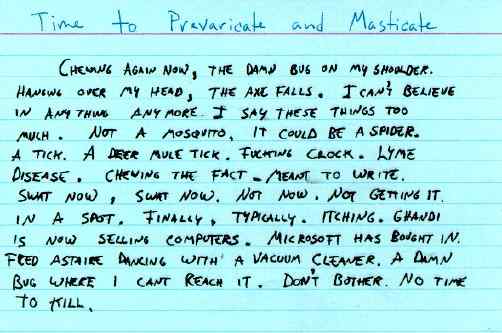 Time to Prevaricate and Masticate
CHEWING AGAIN NOW, THE DAMN BUG ON MY SHOULDER.
HANGING OVER MY HEAD, THE AXE FALLS. I CAN'T BELIEVE
IN ANYTHING ANYMORE. I SAY THESE THINGS TOO
MUCH. NOT A MOSQUITO, IT COULD BE A SPIDER.
A TICK. A DEER MULE TICK. FUCKING CLOCK. LYME
DISEASE. CHEWING THE FACT - MEANT TO WRITE.
SWAT NOW, SWAT NOW. NOT NOW. NOT GETTING IT.
IN A SPOT. FINALLY, TYPICALLY. ITCHING. GHANDI
IS NOW SELLING COMPUTERS. MICROSOFT HAS BOUGHT IN.
FRED ASTAIRE DANCING WITH A VACUUM CLEANER. A DAMN
BUG WHERE I CANT REACH IT. DON'T BOTHER. NO TIME
TO KILL.